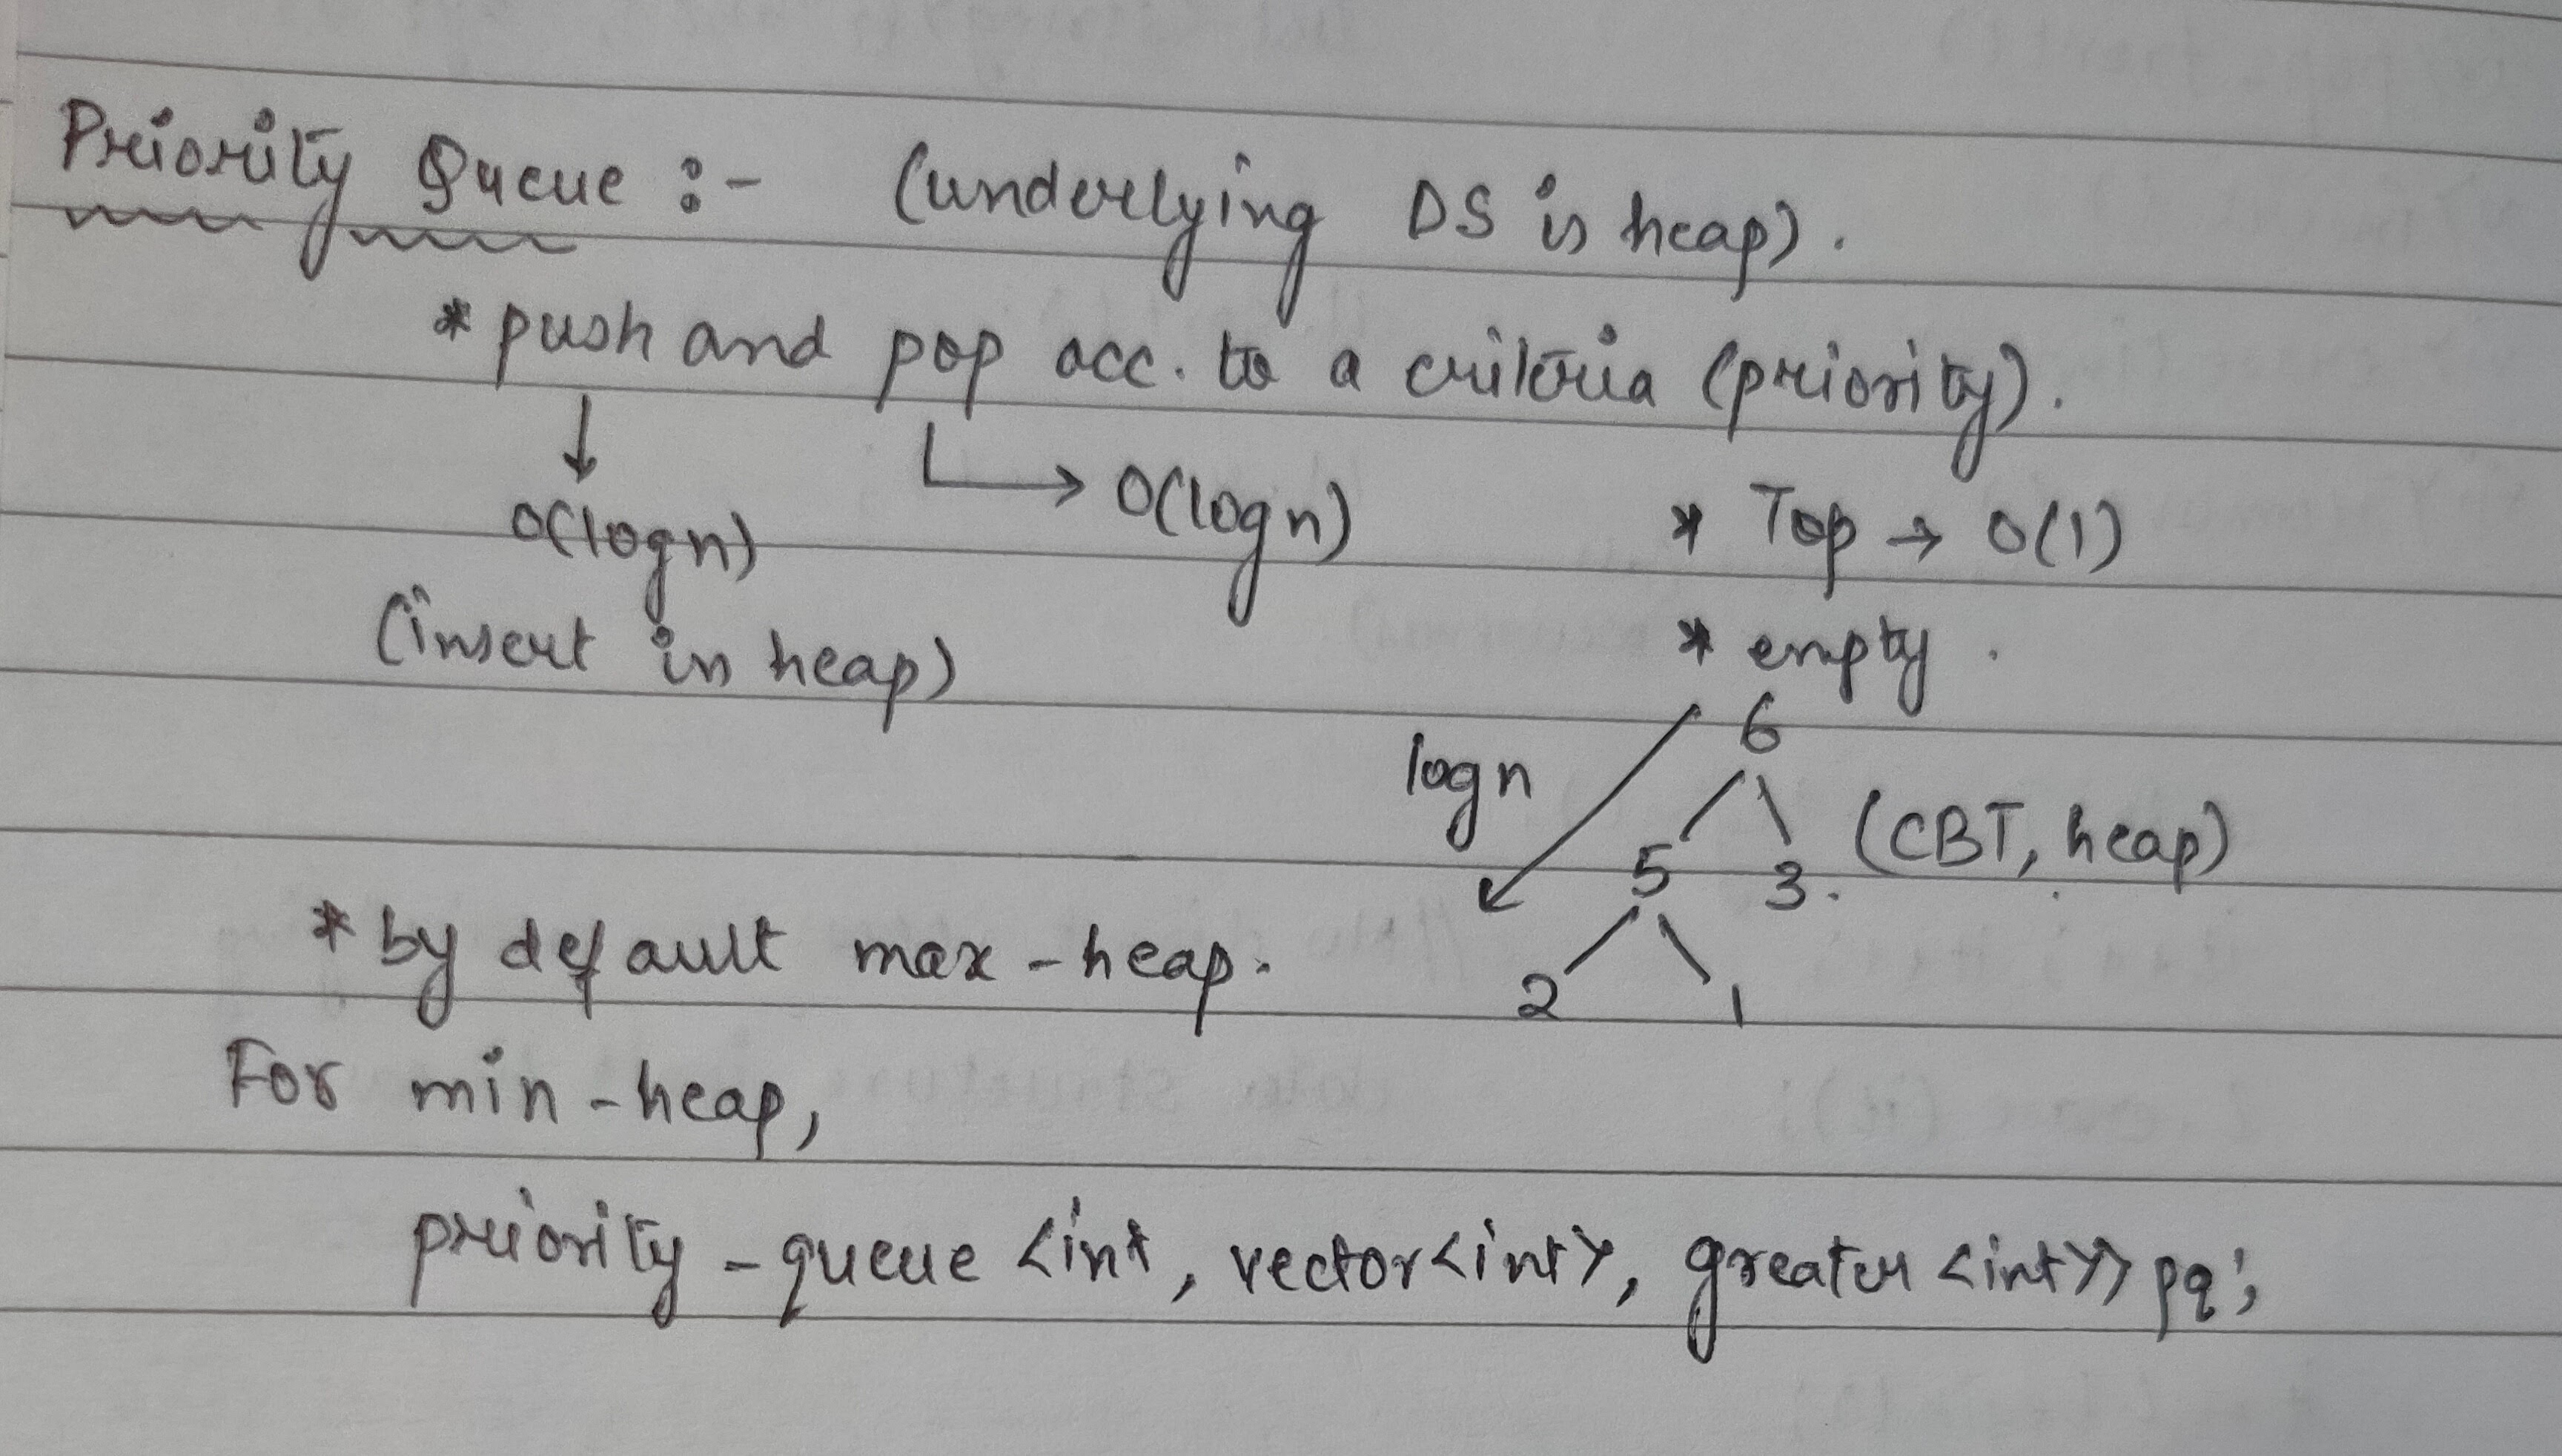 Priority Queue :- (underlying DS is heap).
* push and pop acc. to a criteria (priority).
↓ └→ O(logn)
O(logn)
(insert in heap)
* Top → O(1)
* empty.
logn
6
5 3.
(CBT, heap)
2 1
* by default max-heap.
For min-heap,
priority-queue <int, vector<int>, greater<int>> pq;